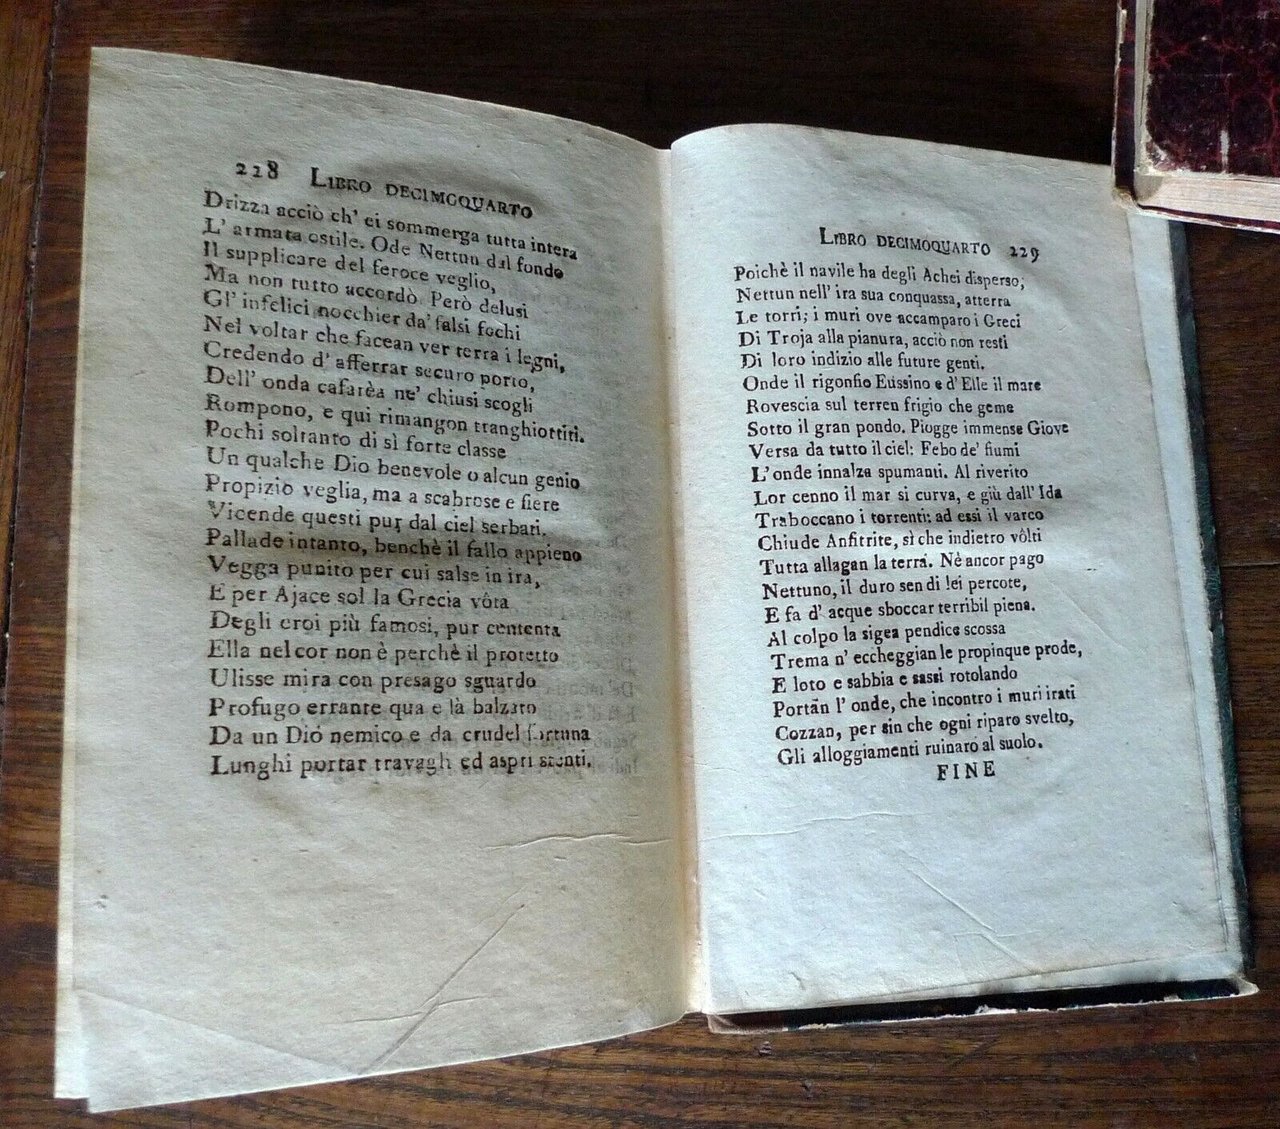 228 LIBRO DECIMOQUARTO
Drizza acciò ch' ei sommerga tutta intera
L' armata ostile. Ode Nettun dal fondo
Il supplicare del feroce veglio,
Ma non tutto accordò. Però delusi
Gl' infelici nocchier da' falsi fochi
Nel voltar che facean ver terra i legni,
Credendo d' afferrar securo porto,
Dell' onda cafarèa ne' chiusi scogli
Rompono, e qui rimangon tranghiottiti.
Pochi soltanto di sì forte classe
Un qualche Dio benevole o alcun genio
Propizio veglia, ma a scabrose e fiere
Vicende questi pur dal ciel serbati.
Pallade intanto, benchè il fallo appieno
Vegga punito per cui salse in ira,
E per Ajace sol la Grecia vôta
Degli eroi più famosi, pur contenta
Ella nel cor non è perchè il protetto
Ulisse mira con presago sguardo
Profugo errante qua e là balzato
Da un Dio nemico e da crudel fortuna
Lunghi portar travagli ed aspri stenti.
LIBRO DECIMOQUARTO 229
Poichè il navile ha degli Achei disperso;
Nettun nell' ira sua conquassa, atterra
Le torri; i muri ove accamparo i Greci
Di Troja alla pianura, acciò non resti
Di loro indizio alle future genti.
Onde il rigonfio Eussino e d' Elle il mare
Rovescia sul terren frigio che geme
Sotto il gran pondo. Piogge immense Giove
Versa da tutto il ciel: Febo de' fiumi
L' onde innalza spumanti. Al riverito
Lor cenno il mar si curva, e giù dall' Ida
Traboccano i torrenti: ad essi il varco
Chiude Anfitrite, sì che indietro vôlti
Tutta allagan la terra. Nè ancor pago
Nettuno, il duro sen di lei percote,
E fa d' acque sboccar terribil piena.
Al colpo la sigea pendice scossa
Trema n' eccheggian le propinque prode,
E loto e sabbia e sassi rotolando
Portan l' onde, che incontro i muri irati
Cozzan, per sin che ogni riparo svelto,
Gli alloggiamenti ruinaro al suolo.
FINE